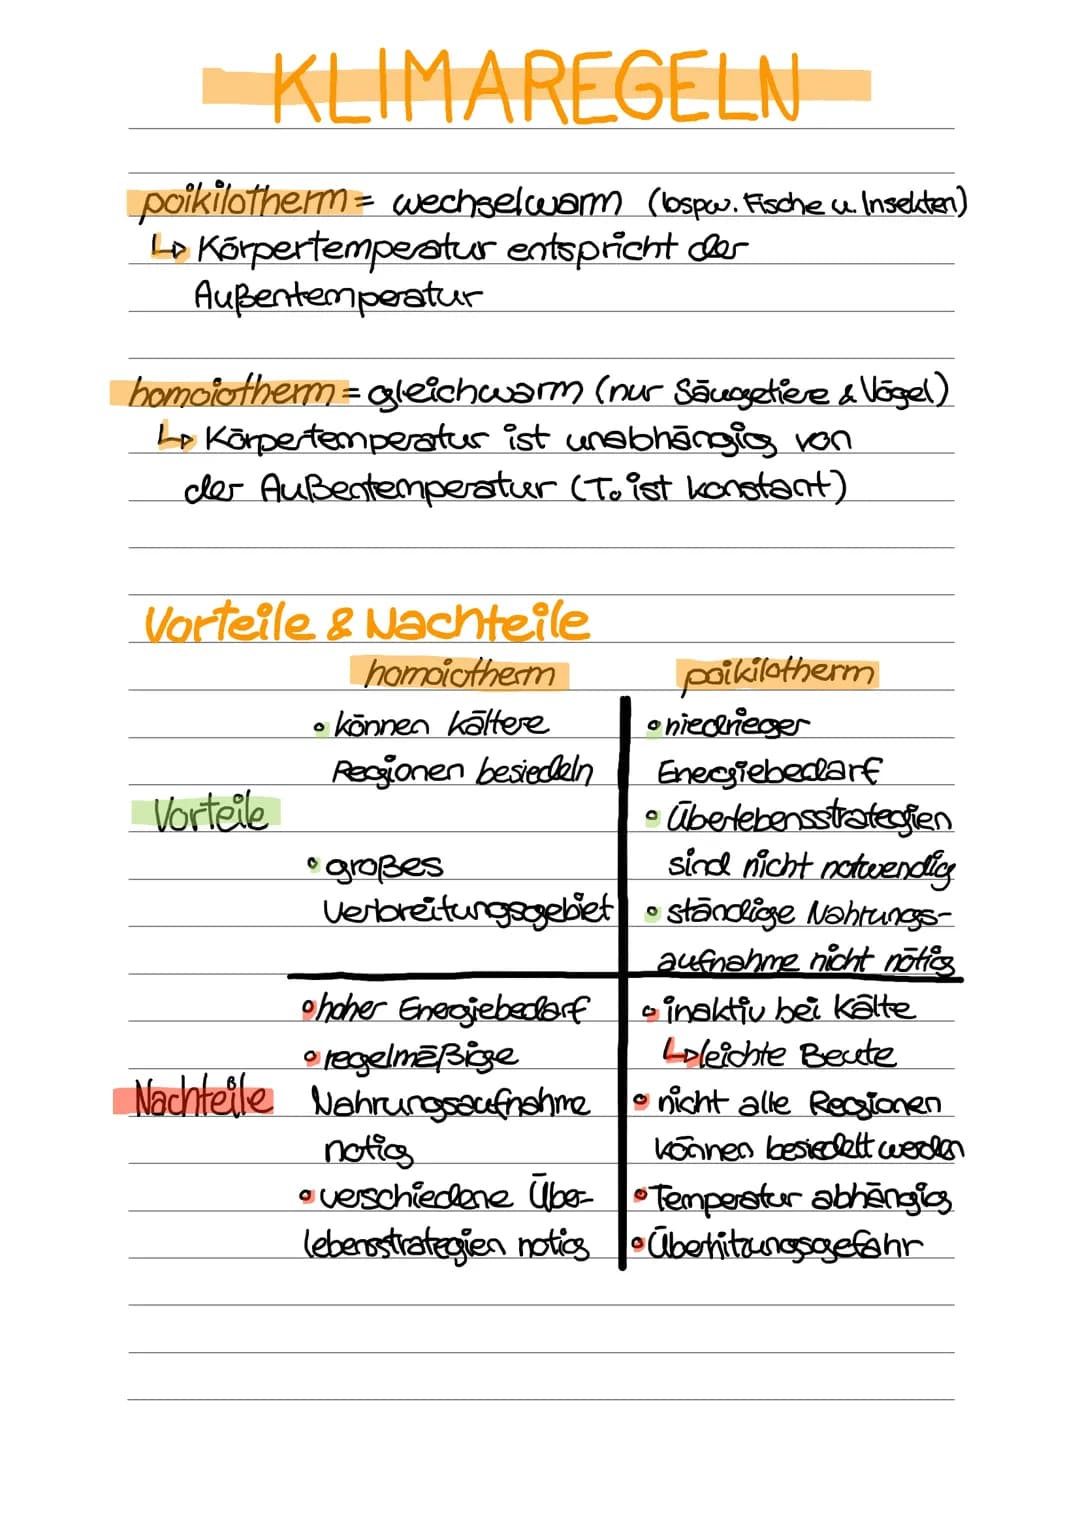 KLIMAREGELN
poikilotherm = wechselwarm (bspw. Fische u. Insekten)
↳ Körpertemperatur entspricht der
Außentemperatur
homoiotherm = gleichwarm (nur Säugetiere & Vögel)
↳ Körpertemperatur ist unabhängig von
der Außentemperatur (T. ist konstant)
Vorteile & Nachteile
homoiotherm
poikilotherm
Vorteile
• können kältere
Regionen besiedeln
• großes
Verbreitungsgebiet
• niedrieger
Energiebedarf
• Überlebensstrategien
sind nicht notwendig
• ständige Nahrungs-
aufnahme nicht nötig
Nachteile
• hoher Energiebedarf
• regelmäßige
Nahrungsaufnahme
notig
• verschiedene Über-
lebensstrategien notig
• inaktiv bei Kälte
↳ leichte Beute
• nicht alle Regionen
können besiedelt werden
• Temperatur abhängig
• Überhitzungsgefahr